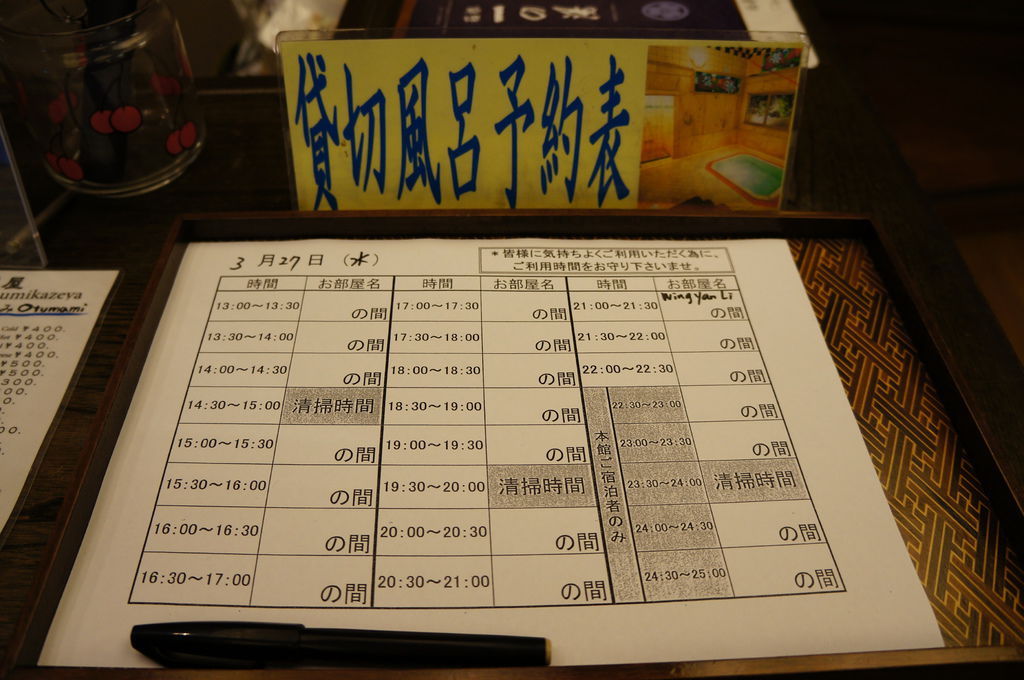 貸切風呂予約表
3月27日（水）
＊皆様に気持ちよくご利用いただく為に、
ご利用時間をお守り下さいませ。
時間 お部屋名 時間 お部屋名 時間 お部屋名
13:00～13:30 の間 17:00～17:30 の間 21:00～21:30 Wing Yan Li の間
13:30～14:00 の間 17:30～18:00 の間 21:30～22:00 の間
14:00～14:30 の間 18:00～18:30 の間 22:00～22:30 の間
14:30～15:00 清掃時間 18:30～19:00 の間 22:30～23:00 の間
15:00～15:30 の間 19:00～19:30 の間 23:00～23:30 の間
15:30～16:00 の間 19:30～20:00 清掃時間 23:30～24:00 清掃時間
16:00～16:30 の間 20:00～20:30 の間 24:00～24:30 の間
16:30～17:00 の間 20:30～21:00 の間 24:30～25:00 の間
本館ご宿泊者のみ
屋
umikazeya
Otumami
¥400.
¥400.
¥400.
¥400.
¥500.
¥500.
300.